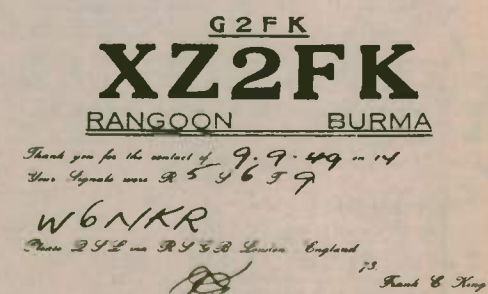 G2FK
XZ2FK
RANGOON BURMA
Thank you for the contact of 9.9.49 on 14
Your Signals were R 5 S 6 T 9
W6NKR
Please QSL via RSGB London England
73.
Frank C King